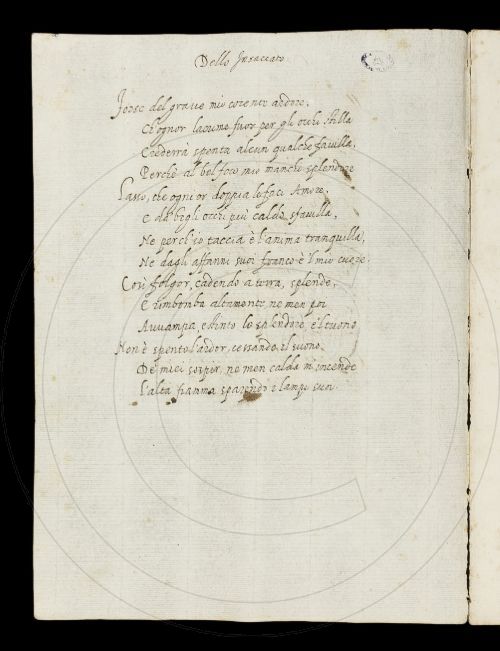 Dello Insaccato.
Forse del graue mio cocente ardore,
Ch'ognor lacrime fuor per gli occhi stilla
Crederrà spenta alcun qualche fauilla,
Perchè al bel foco mio manche splendore
Lasso, che ogni or doppia le faci Amore,
E da begli occhi più caldo sfauilla,
Ne perch'io taccia è l'anima tranquilla,
Ne dagli affanni suoi franco è il mio cuore.
Così folgor, cadendo a terra, splende,
E rimbomba altamente, ne men poi
Auuampa, estinto lo splendore, e'l tuono
Non è spento l'ardor, cessando il suono
De miei sospir, ne men calda m'incende
L'alta fiamma sparendo i lampi suoi.